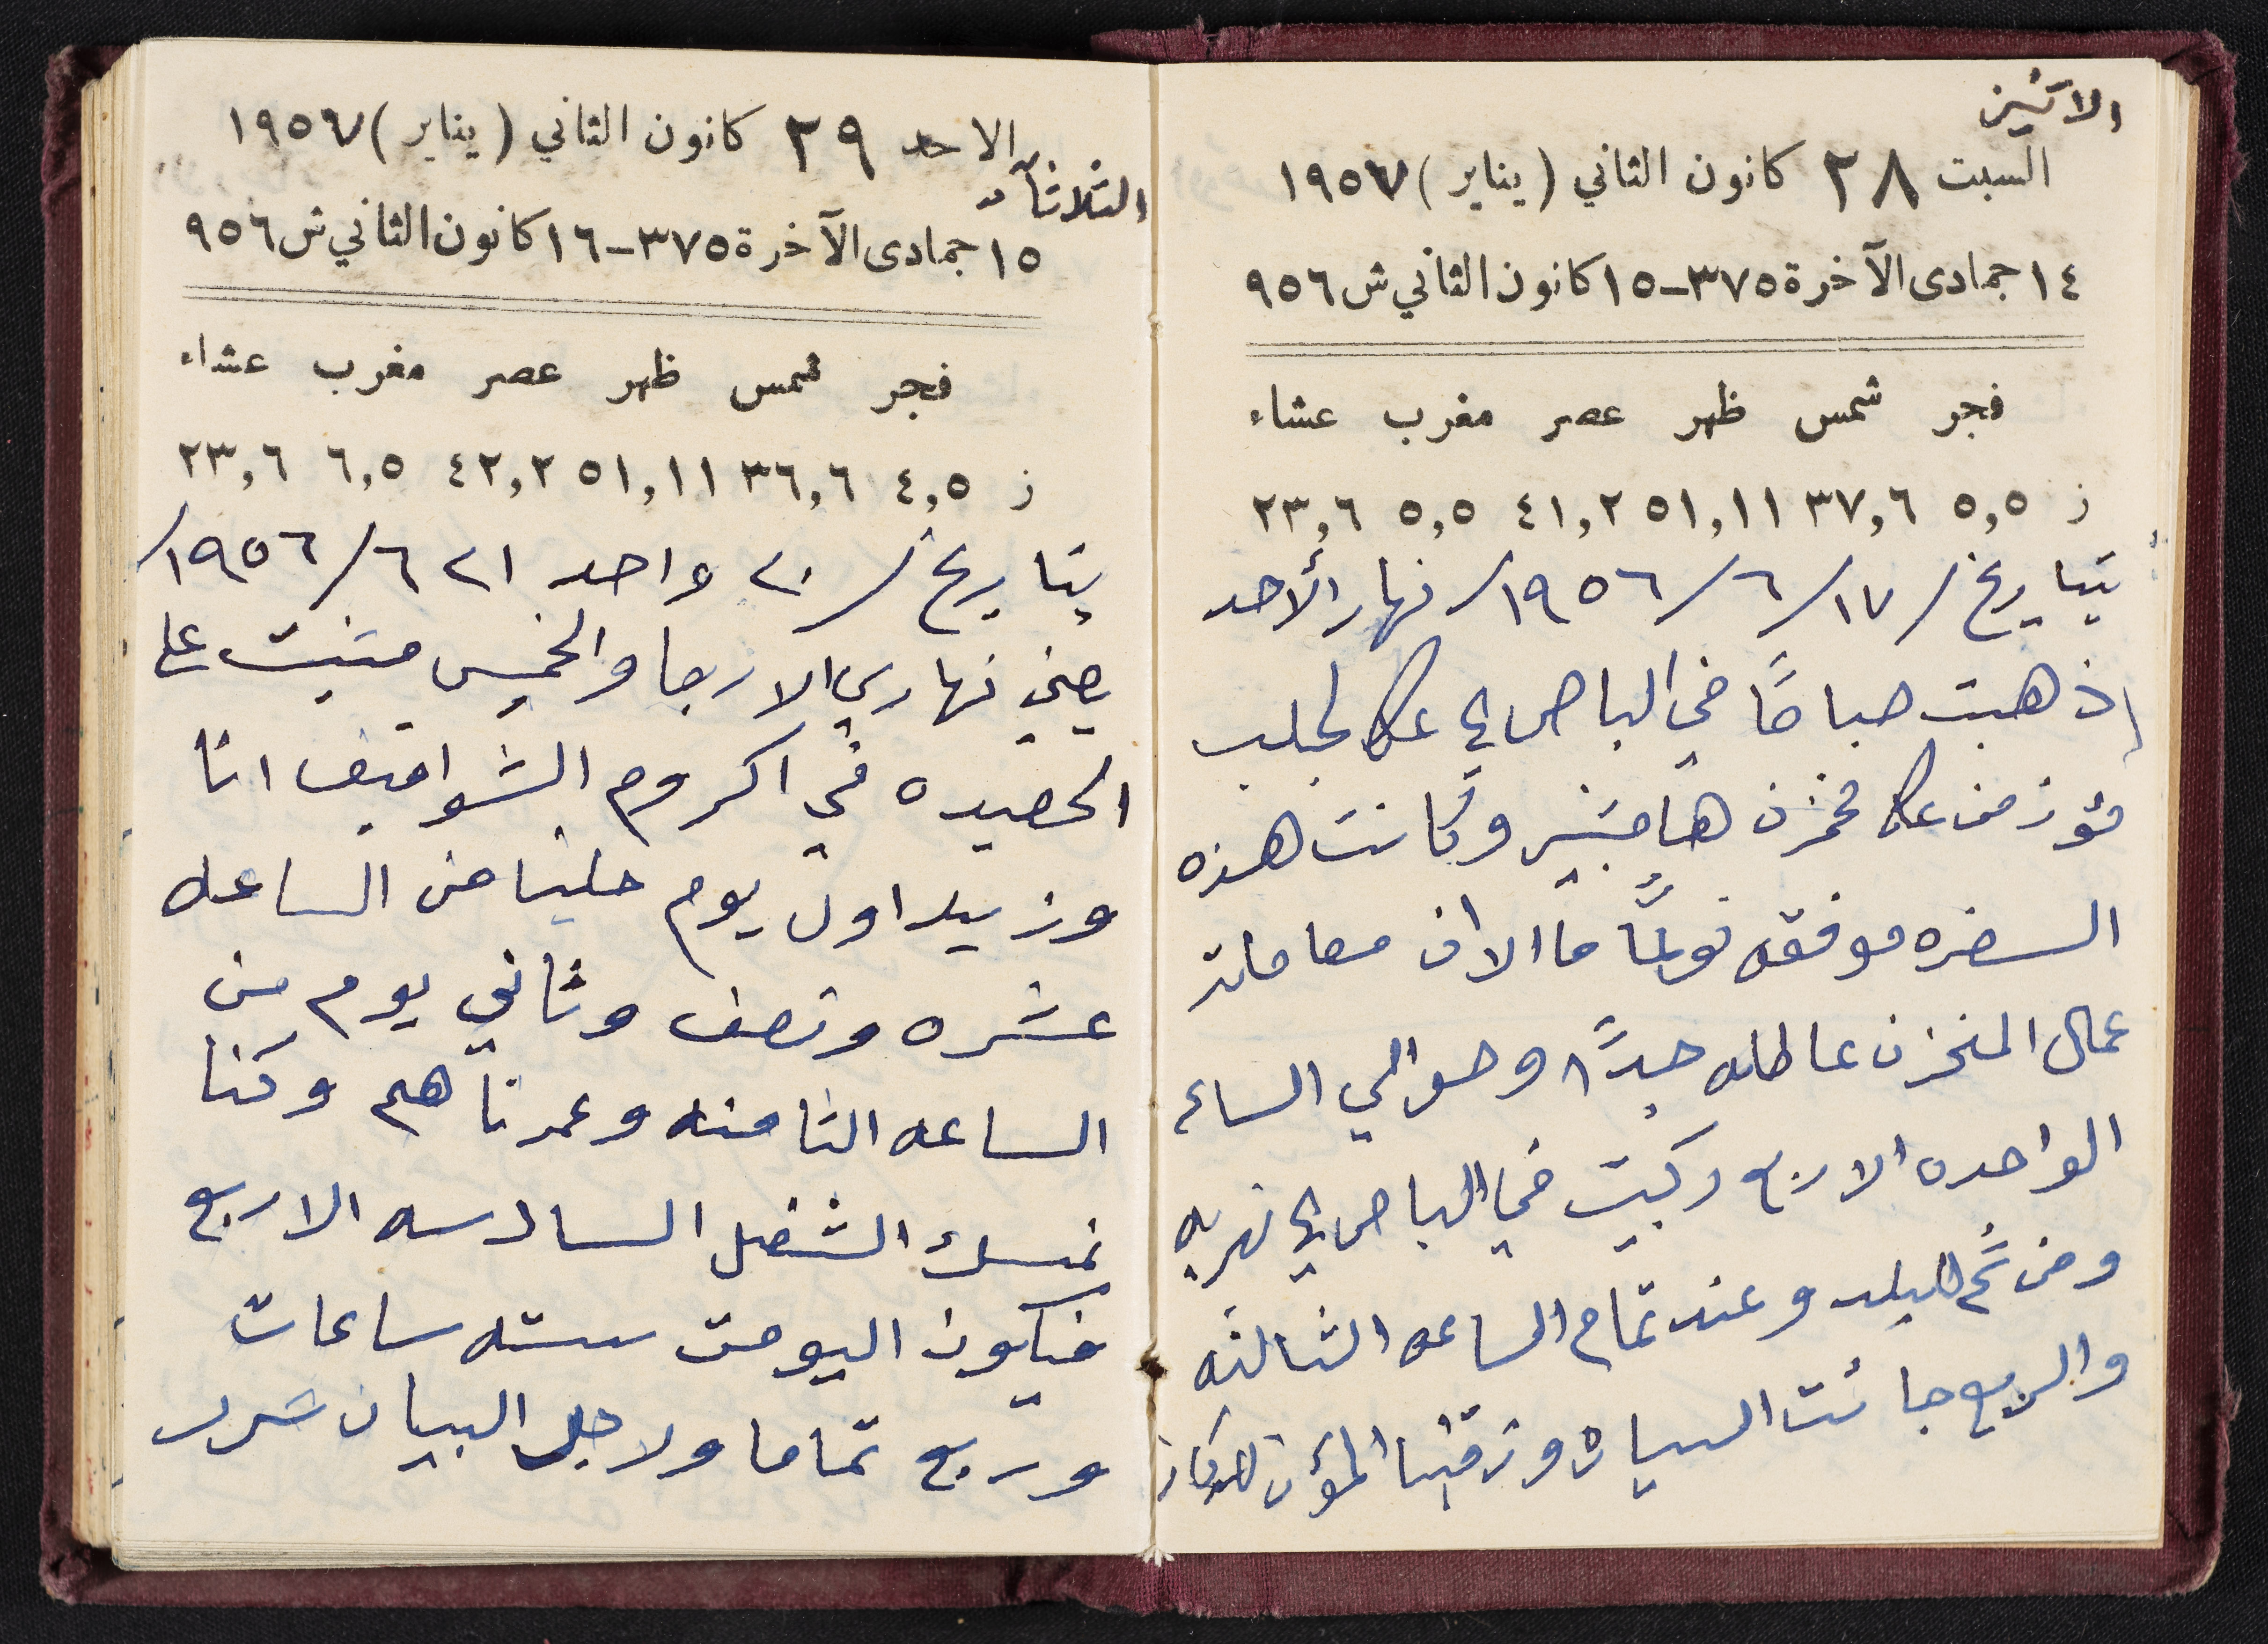 الاثنين
السبت ٢٨ كانون الثاني (يناير) ١٩٥٧
١٤ جمادى الآخرة ٣٧٥-١٥ كانون الثاني ش ٩٥٦
فجر شمس ظهر عصر مغرب عشاء
ز ٥,٥ ٣٧,٦ ٥١,١١ ٤١,٢ ٥,٥ ٢٣,٦
بتاريخ / ١٧/ ٦/ ١٩٥٦/ نهار الأحد
اذهبت صباحًا في الباص الى عكا لجلب
مؤن من عكا مخزن هامشبير وكانت هذه
السفره موفقه نوعًا ما الا ان معاملة
عمال المخزن عاطله جدًا وحوالي الساعه
الواحده الا ربع ركبت في الباص الى نهريه
ومن ثم للبلد وعند تمام الساعه الثالثه
والربع جائت السياره ونقلنا المؤن للدكان
الاحد ٢٩ كانون الثاني (يناير) ١٩٥٧
الثلاثاء
١٥ جمادى الآخرة ٣٧٥-١٦ كانون الثاني ش ٩٥٦
فجر شمس ظهر عصر مغرب عشاء
ز ٤,٥ ٣٦,٦ ٥١,١١ ٤٢,٢ ٦,٥ ٢٣,٦
بتاريخ / ٢٠ واحد ٢١ ٦/ ١٩٥٦/
يعني نهاري الاربعا والخميس مشيت على
الحصيده في اكروم الشواميف انا
وزيد اول يوم حلينا من الساعه
عشره ونصف وثاني يوم من
الساعه الثامنه وعمرناهم وكنا
نمسك الشغل السادسه الا ربع
فيكون اليومت سته ساعات
وربع تماما ولاجل البيان سرر